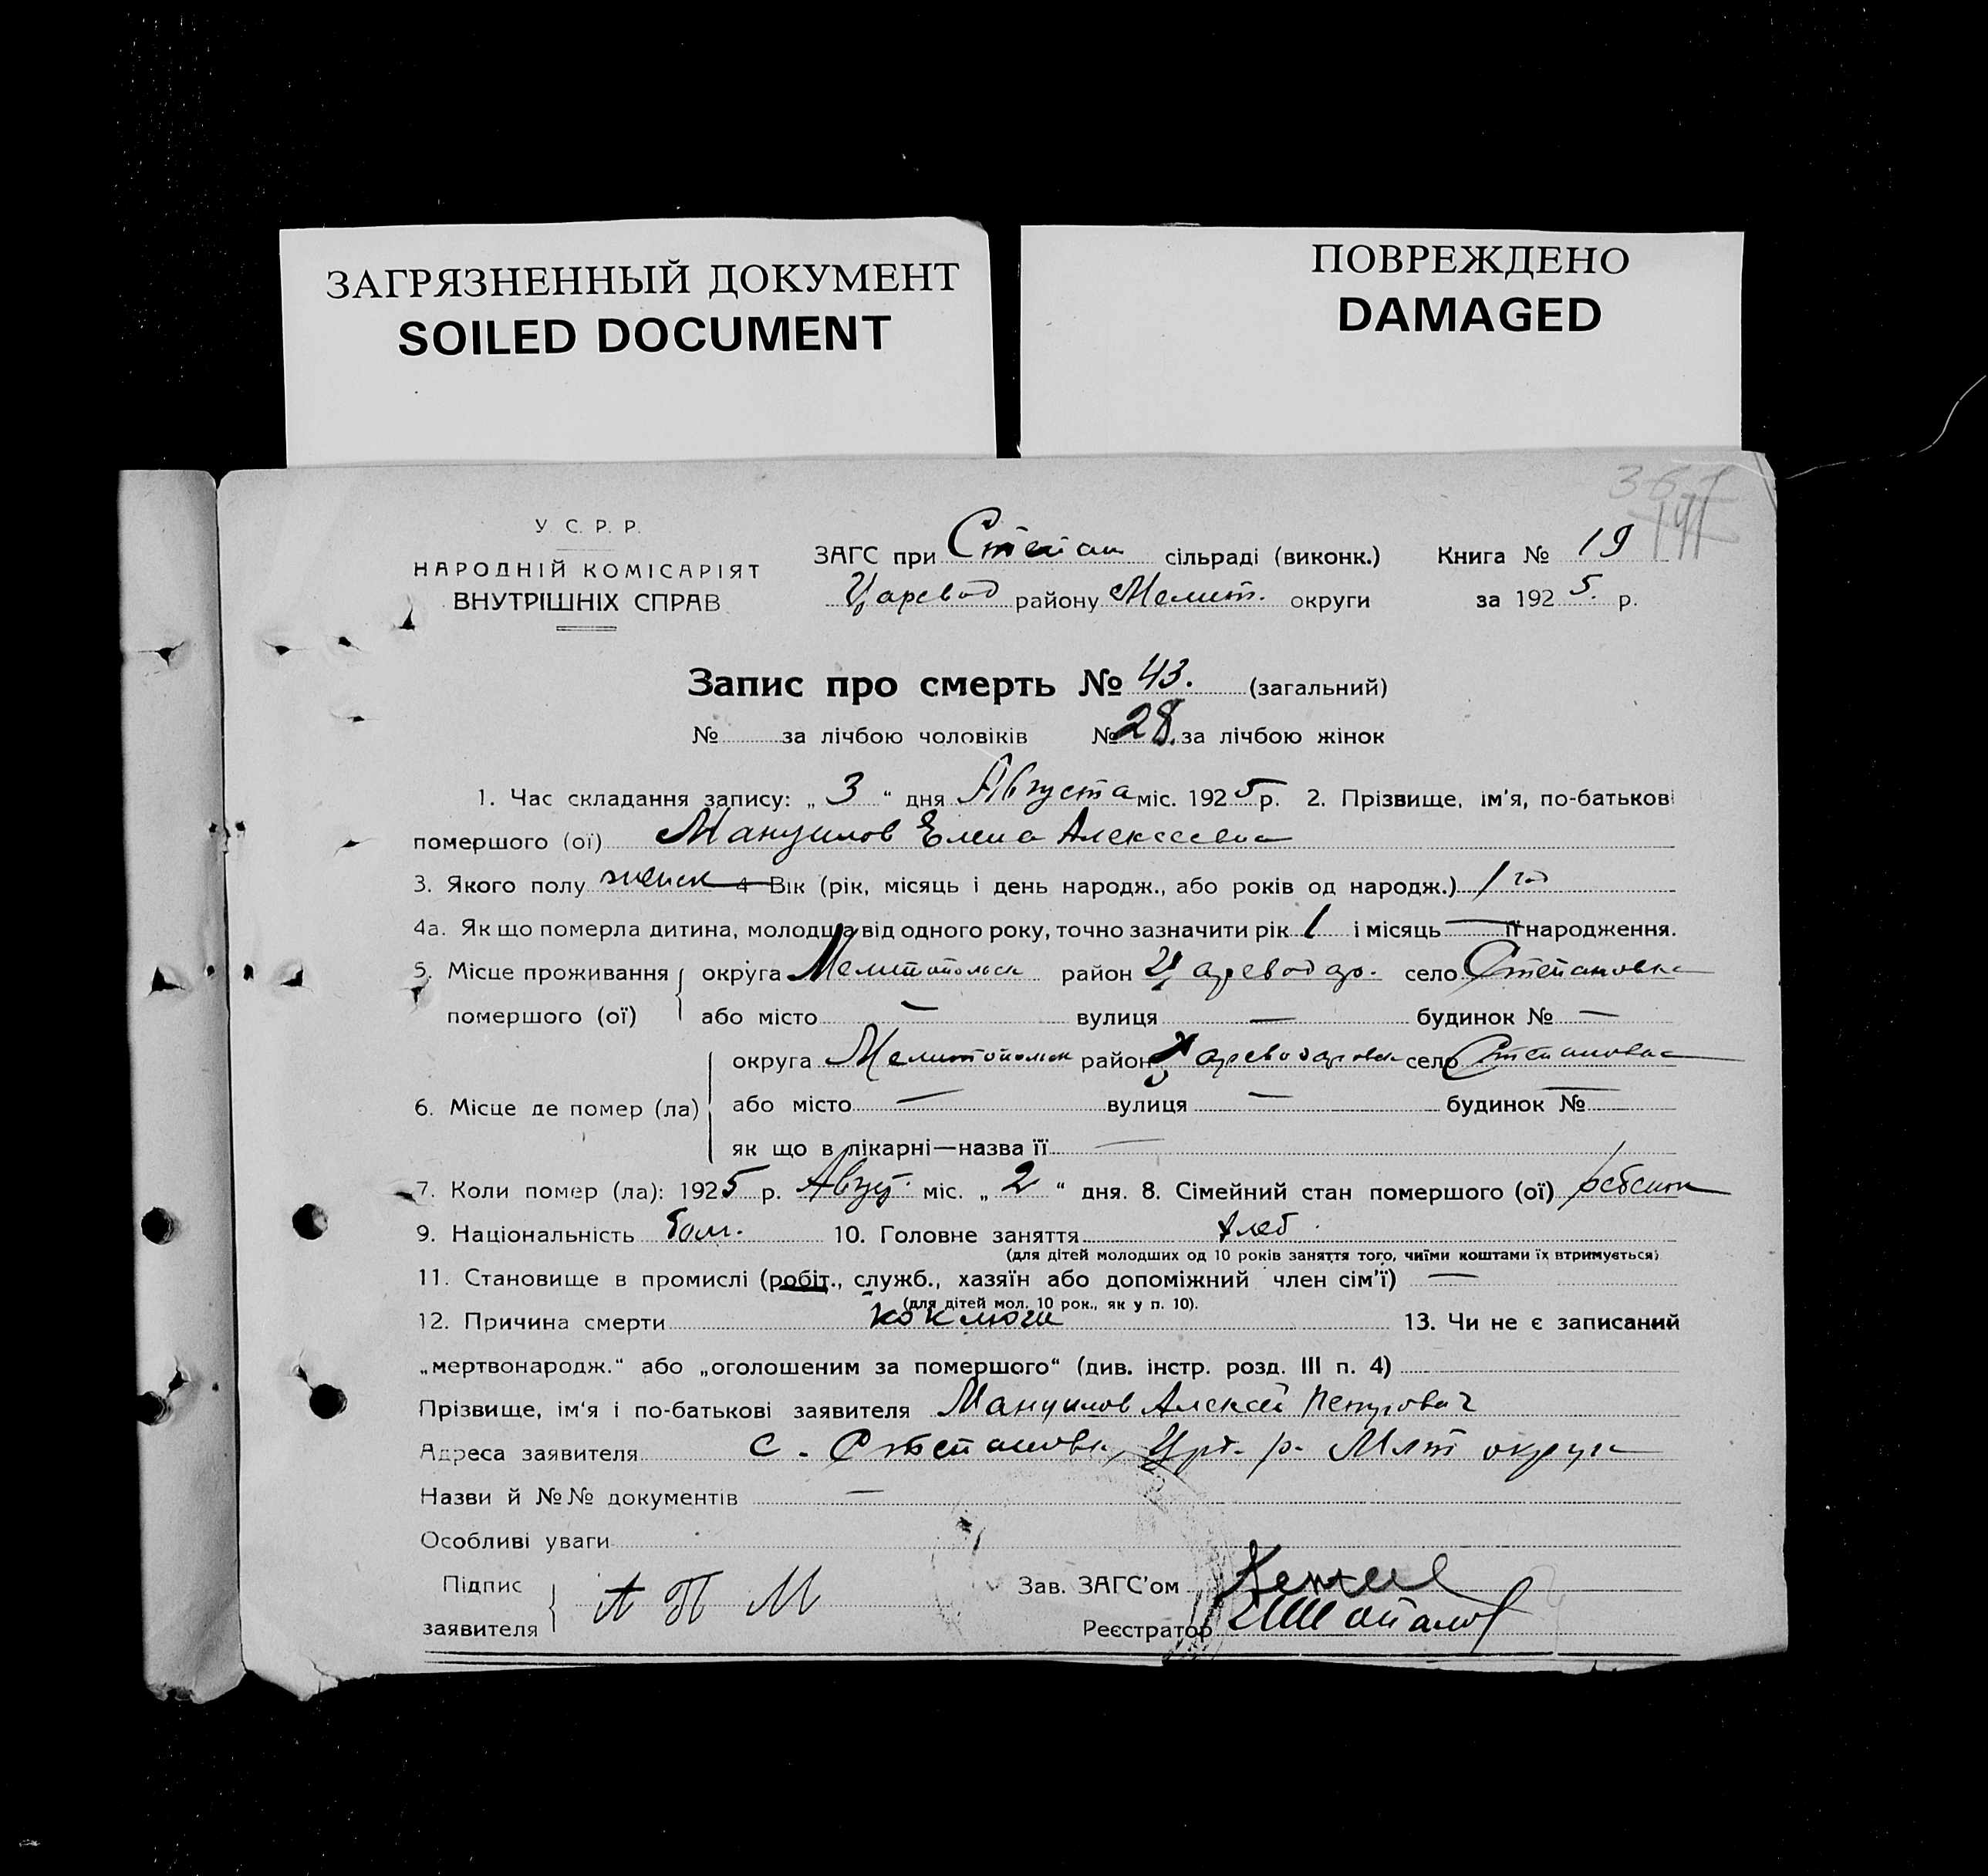 ЗАГРЯЗНЕННЫЙ ДОКУМЕНТ
SOILED DOCUMENT
ПОВРЕЖДЕНО
DAMAGED
У. С. Р. Р.
НАРОДНІЙ КОМІСАРІЯТ
ВНУТРІШНІХ СПРАВ
ЗАГС при Степан сільраді (виконк.) Книга № 19
Царевод району Мелит. округи за 1925. р.
Запис про смерть № 43. (загальний)
№ за лічбою чоловіків № 28. за лічбою жінок
1. Час складання запису: „ 3 “ дня Августа міс. 1925 р. 2. Прізвище, ім'я, по-батькові
помершого (ої) Мануилов Елена Алексеевна
3. Якого полу женск 4 Вік (рік, місяць і день народж., або років од народж.) 1 год
4а. Як що померла дитина, молодша від одного року, точно зазначити рік 1 і місяць — її народження.
5. Місце проживання округа Мелитопольск район Цареводар. село Степановка
помершого (ої) або місто — вулиця — будинок № —
округа Мелитопольск район Цареводаровск село Степановка
6. Місце де помер (ла) або місто — вулиця — будинок № —
як що в лікарні—назва її —
7. Коли помер (ла): 1925 р. Авгус. міс. „ 2 “ дня. 8. Сімейний стан помершого (ої) ребенок
9. Національність болг. 10. Головне заняття хлеб.
(для дітей молодших од 10 років заняття того, чиїми коштами їх втримується)
11. Становище в промислі (робіт., служб., хазяїн або допоміжний член сім'ї) —
(для дітей мол. 10 рок., як у п. 10).
12. Причина смерти коклюш 13. Чи не є записаний
„мертвонародж.“ або „оголошеним за помершого“ (див. інстр. розд. III п. 4)
Прізвище, ім'я і по-батькові заявителя Мануилов Алексей Петрович
Адреса заявителя с. Степановка, Црд. р. Млт округа
Назви й №№ документів —
Особливі уваги
Підпис
заявителя А П М
Зав. ЗАГС'ом
Реєстратор